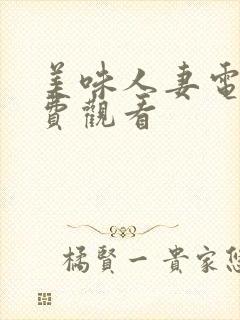 美味人妻電
費觀看
橘賢一 貴家悠